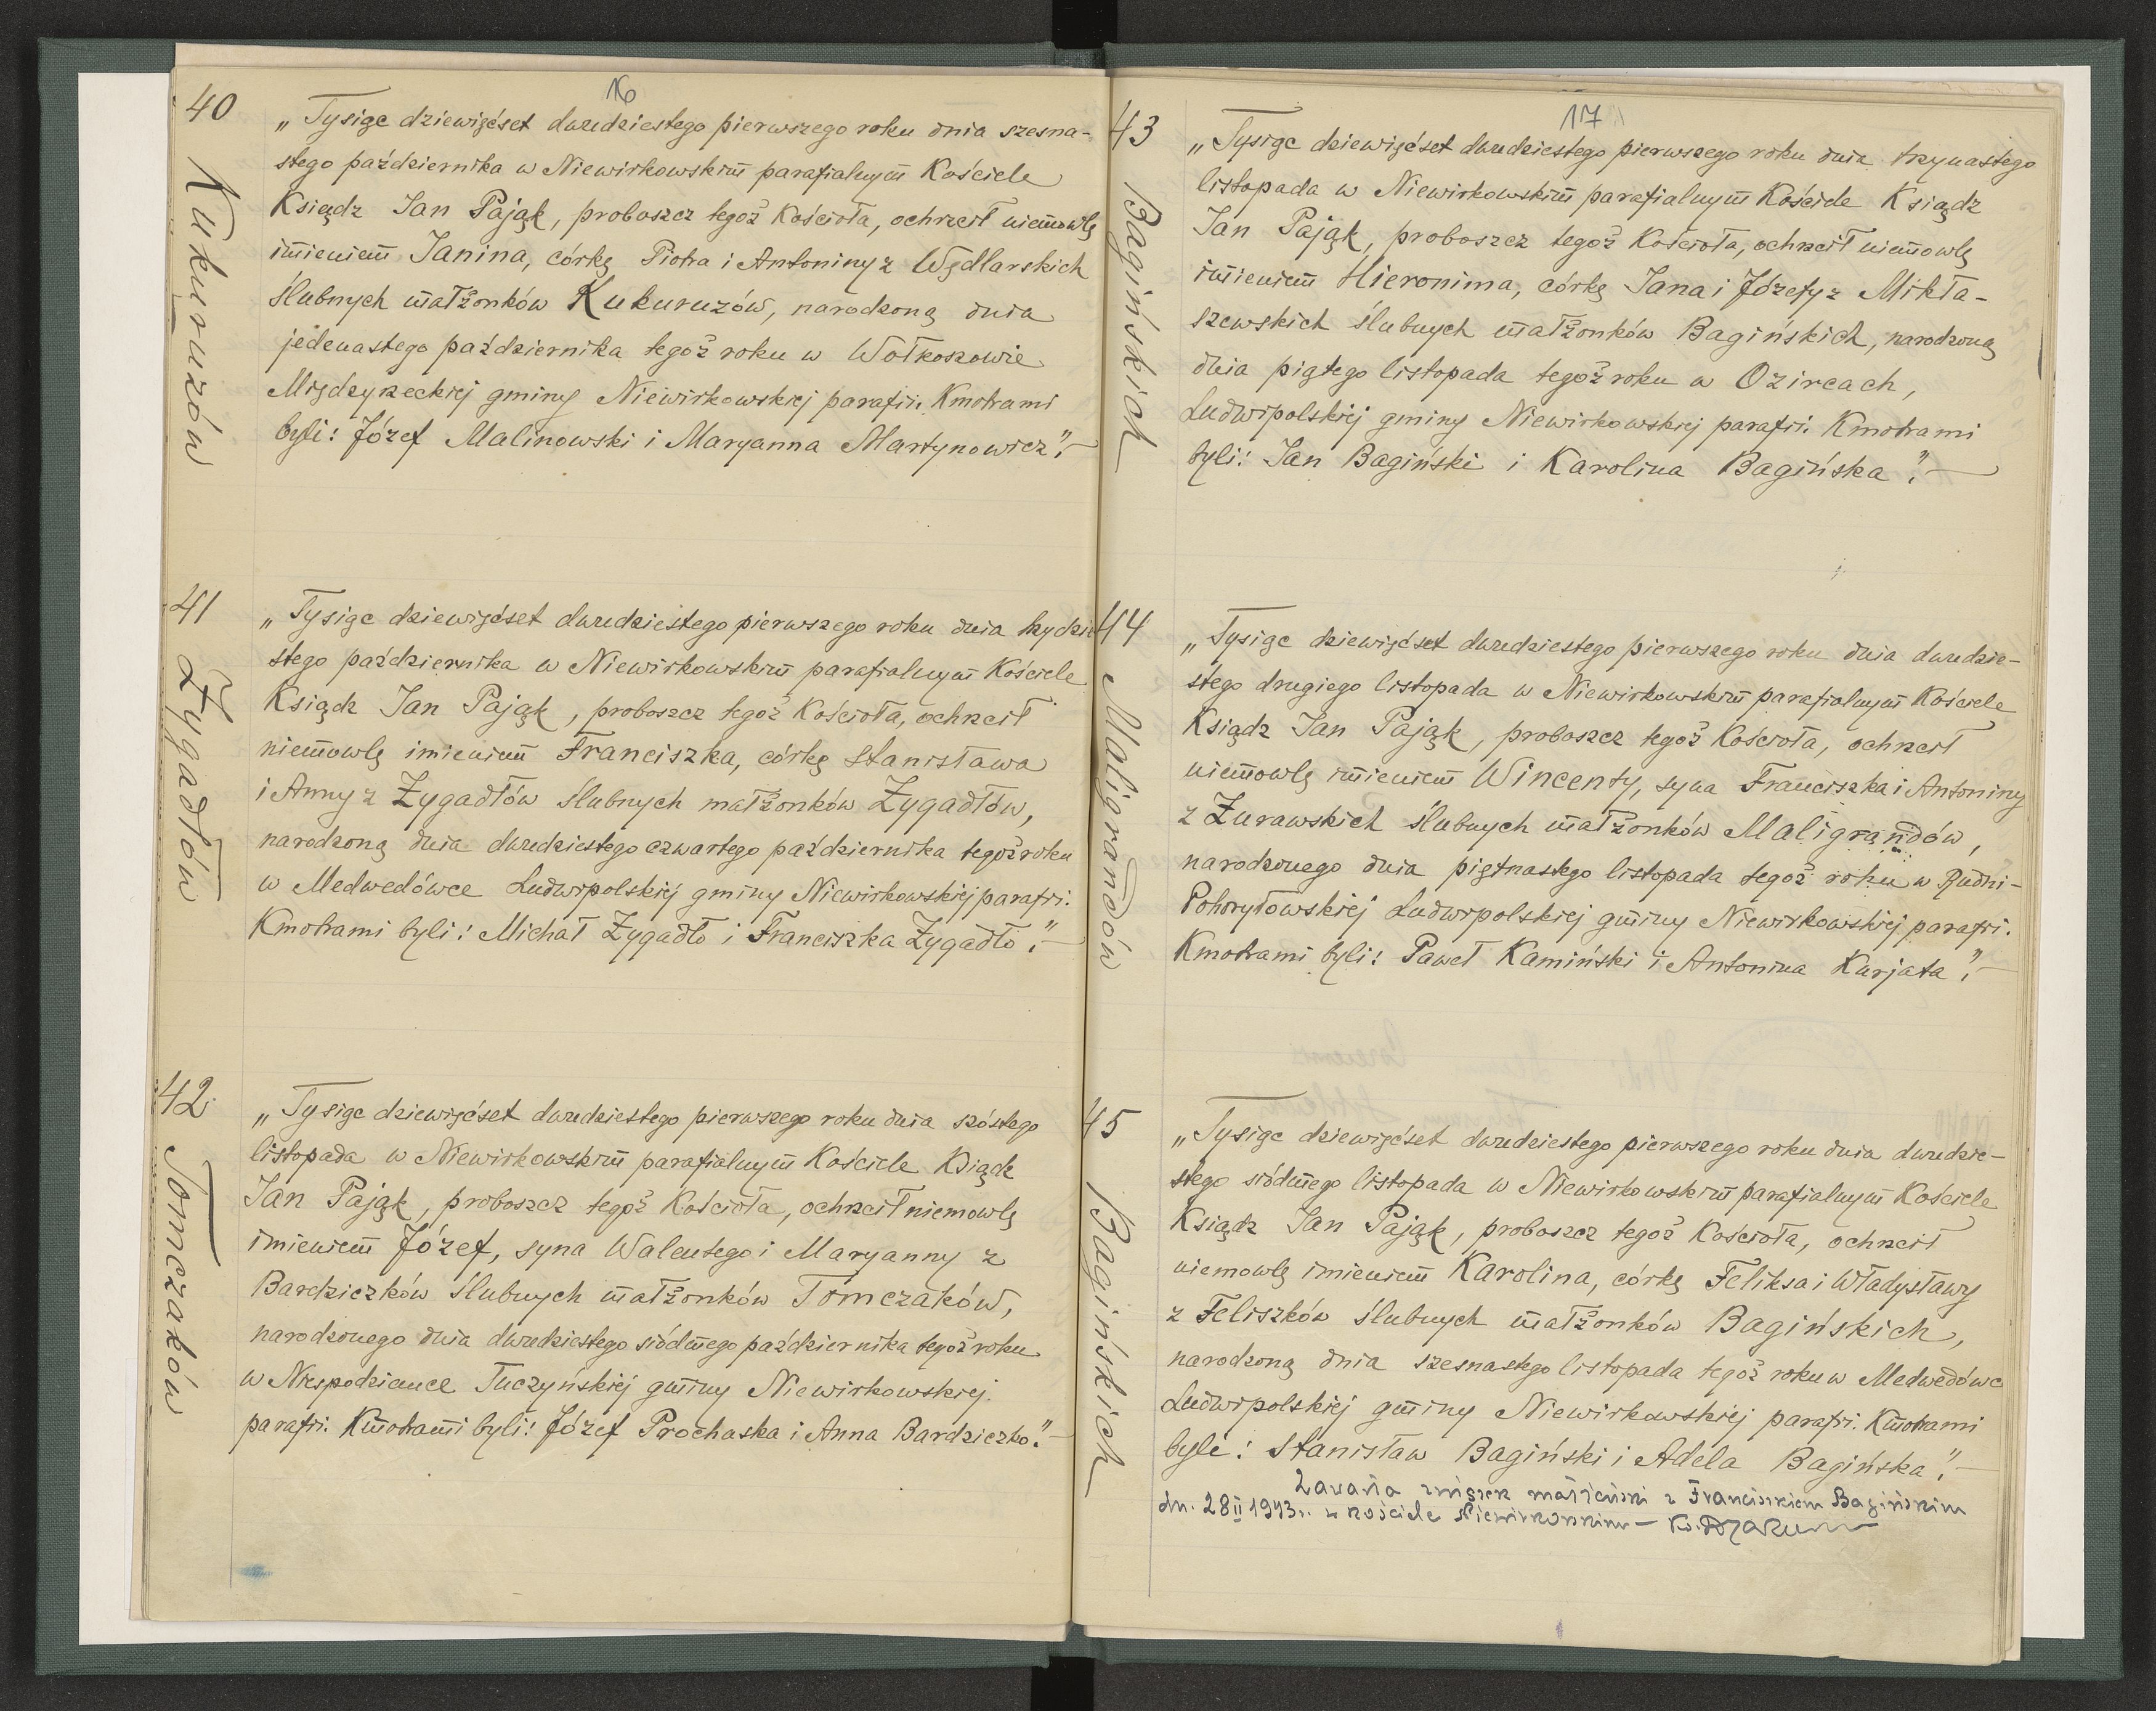 16
40
Kukuruzów
„Tysiąc dziewięćset dwudziestego pierwszego roku dnia szesna-
stego października w Niewirkowskim parafialnym Kościele
Ksiądz Jan Pająk, proboszcz tegoż Kościoła, ochrzcił niemowlę
imieniem Janina, córkę Piotra i Antoniny z Wędlarskich
ślubnych małżonków Kukuruzów, narodzoną dnia
jedenastego października tegoż roku w Wołkoszowie
Międzyrzeckiej gminy Niewirkowskiej parafii. Kmotrami
byli: Józef Malinowski i Maryanna Martynowicz”.—
41
Zygadłów
„Tysiąc dziewięćset dwudziestego pierwszego roku dnia trzydzie
stego października w Niewirkowskim parafialnym Kościele
Ksiądz Jan Pająk, proboszcz tegoż Kościoła, ochrzcił
niemowlę imieniem Franciszka, córkę Stanisława
i Anny z Zygadłów ślubnych małżonków Zygadłów,
narodzoną dnia dwudziestego czwartego października tegoż roku
w Medwedówce Ludwipolskiej gminy Niewirkowskiej parafii.
Kmotrami byli: Michał Zygadło i Franciszka Zygadło”.—
42.
Tomczaków
„Tysiąc dziewięćset dwudziestego pierwszego roku dnia szóstego
listopada w Niewirkowskim parafialnym Kościele Ksiądz
Jan Pająk, proboszcz tegoż Kościoła, ochrzcił niemowlę
imieniem Józef, syna Walentego i Maryanny z
Bardziczków ślubnych małżonków Tomczaków,
narodzonego dnia dwudziestego siódmego października tegoż roku
w Niespodziance Tuczyńskiej gminy Niewirkowskiej
parafii. Kmotrami byli: Józef Prochaska i Anna Bardziczko”.—
17
43
Bagińskich
„Tysiąc dziewięćset dwudziestego pierwszego roku dnia trzynastego
listopada w Niewirkowskim parafialnym Kościele Ksiądz
Jan Pająk, proboszcz tegoż Kościoła, ochrzcił niemowlę
imieniem Hieronima, córkę Jana i Józefy z Mikła-
szewskich ślubnych małżonków Bagińskich, narodzoną
dnia piątego listopada tegoż roku w Ozircach,
Ludwipolskiej gminy Niewirkowskiej parafii. Kmotrami
byli: Jan Bagiński i Karolina Bagińska”.—
44
Maligrandów
„Tysiąc dziewięćset dwudziestego pierwszego roku dnia dwudzie-
stego drugiego listopada w Niewirkowskim parafialnym Kościele
Ksiądz Jan Pająk, proboszcz tegoż Kościoła, ochrzcił
niemowlę imieniem Wincenty, syna Franciszka i Antoniny
z Żurawskich ślubnych małżonków Maligrandów,
narodzonego dnia piętnastego listopada tegoż roku w Rudni-
Pohoryłowskiej Ludwipolskiej gminy Niewirkowskiej parafii.
Kmotrami byli: Paweł Kamiński i Antonina Kurjata”.—
45
Bagińskich
„Tysiąc dziewięćset dwudziestego pierwszego roku dnia dwudzie-
stego siódmego listopada w Niewirkowskim parafialnym Kościele
Ksiądz Jan Pająk, proboszcz tegoż Kościoła, ochrzcił
niemowlę imieniem Karolina, córkę Feliksa i Władysławy
z Feliszków ślubnych małżonków Bagińskich,
narodzoną dnia szesnastego listopada tegoż roku w Medwedówce
Ludwipolskiej gminy Niewirkowskiej parafii. Kmotrami
byli: Stanisław Bagiński i Adela Bagińska”.—
Zawarła związek małżeński z Franciszkiem Bagińskim
dn. 28 II 1943 r. w kościele Niewirkowskim — Ks.